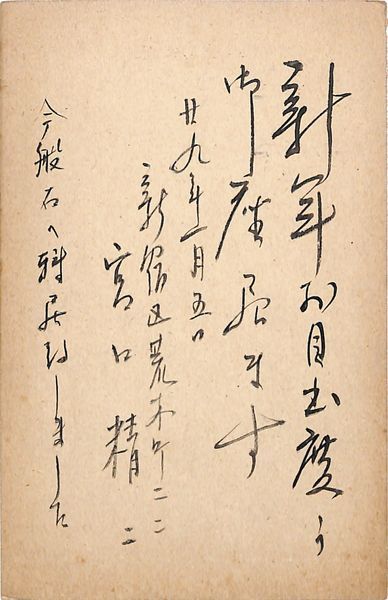 新年お目出度う
御座居ます
廿九年一月五日
新宿区荒木町二二
宮口精二
今般右へ転居致しました